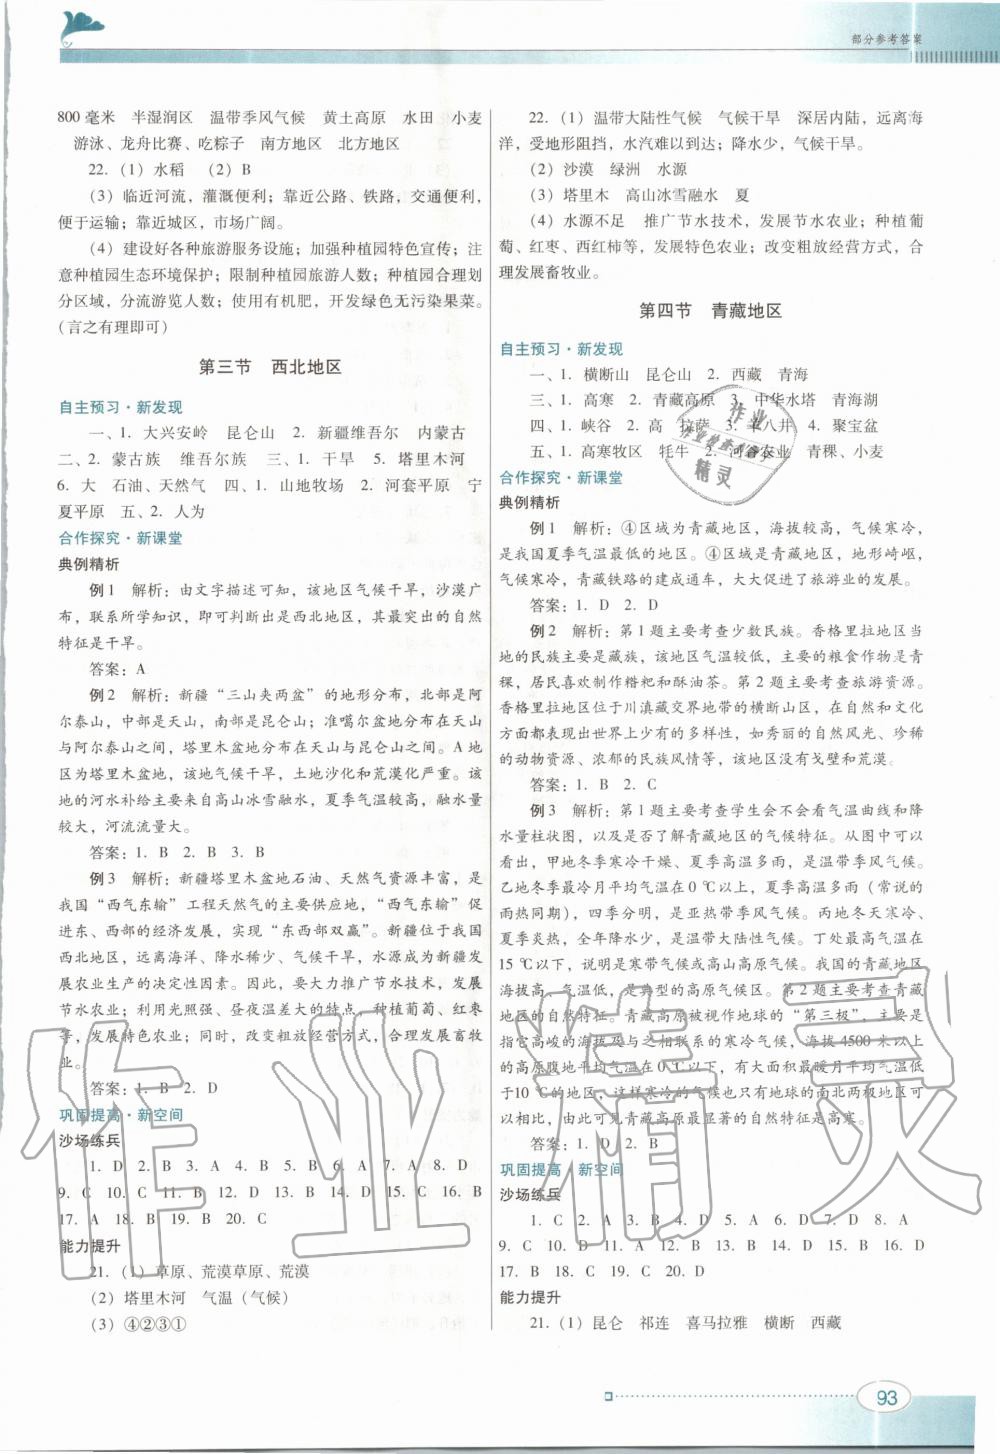 部分参考答案
800毫米　半湿润区　温带季风气候　黄土高原　水田　小麦
游泳、龙舟比赛、吃粽子　南方地区　北方地区
22.（1）水稻　（2）B
（3）临近河流，灌溉便利；靠近公路、铁路，交通便利，
便于运输；靠近城区，市场广阔。
（4）建设好各种旅游服务设施；加强种植园特色宣传；注
意种植园生态环境保护；限制种植园旅游人数；种植园合理划
分区域，分流游览人数；使用有机肥，开发绿色无污染果菜。
（言之有理即可）
第三节　西北地区
自主预习·新发现
一、1. 大兴安岭　昆仑山　2. 新疆维吾尔　内蒙古
二、2. 蒙古族　维吾尔族　三、1. 干旱　5. 塔里木河
6. 大　石油、天然气　四、1. 山地牧场　2. 河套平原　宁
夏平原　五、2. 人为
合作探究·新课堂
典例精析
例1　解析：由文字描述可知，该地区气候干旱，沙漠广
布，联系所学知识，即可判断出是西北地区，其最突出的自然
特征是干旱。
答案：A
例2　解析：新疆“三山夹两盆”的地形分布，北部是阿
尔泰山，中部是天山，南部是昆仑山；准噶尔盆地分布在天山
与阿尔泰山之间，塔里木盆地分布在天山与昆仑山之间。A地
区为塔里木盆地，该地气候干旱，土地沙化和荒漠化严重。该
地的河水补给主要来自高山冰雪融水，夏季气温较高，融水量
较大，河流流量大。
答案：1. B　2. B　3. B
例3　解析：新疆塔里木盆地石油、天然气资源丰富，是
我国“西气东输”工程天然气的主要供应地，“西气东输”促
进东、西部的经济发展，实现“东西部双赢”。新疆位于我国
西北地区，远离海洋、降水稀少、气候干旱，水源成为新疆发
展农业生产的决定性因素。因此，要大力推广节水技术，发展
节水农业；利用光照强、昼夜温差大的特点，种植葡萄、红枣
等，发展特色农业；同时，改变粗放经营方式，合理发展畜牧
业。
答案：1. B　2. D
巩固提高·新空间
沙场练兵
1. D　2. B　3. A　4. B　5. B　6. A　7. A　8. D
9. C　10. C　11. B　12. D　13. D　14. D　15. C　16. B
17. A　18. B　19. B　20. C
能力提升
21.（1）草原、荒漠草原、荒漠
（2）塔里木河　气温（气候）
（3）④②③①
22.（1）温带大陆性气候　气候干旱　深居内陆，远离海
洋，受地形阻挡，水汽难以到达；降水少，气候干旱。
（2）沙漠　绿洲　水源
（3）塔里木　高山冰雪融水　夏
（4）水源不足　推广节水技术，发展节水农业；种植葡
萄、红枣、西红柿等，发展特色农业；改变粗放经营方式，合
理发展畜牧业。
第四节　青藏地区
自主预习·新发现
一、1. 横断山　昆仑山　2. 西藏　青海
三、1. 高寒　2. 青藏高原　3. 中华水塔　青海湖
四、1. 峡谷　2. 高　拉萨　3. 羊八井　4. 聚宝盆
五、1. 高寒牧区　牦牛　2. 河谷农业　青稞、小麦
合作探究·新课堂
典例精析
例1　解析：④区域为青藏地区，海拔较高，气候寒冷，
是我国夏季气温最低的地区。④区域是青藏地区，地形崎岖，
气候寒冷，青藏铁路的建成通车，大大促进了旅游业的发展。
答案：1. D　2. D
例2　解析：第1题主要考查少数民族。香格里拉地区当
地的民族主要是藏族，该地区气温较低，主要的粮食作物是青
稞，居民喜欢制作糌粑和酥油茶。第2题主要考查旅游资源。
香格里拉地区位于川滇藏交界地带的横断山区，在自然和文化
方面都表现出世界上少有的多样性，如秀丽的自然风光、珍稀
的动物资源、浓郁的民族风情等，该地区没有戈壁和荒漠。
答案：1. B　2. C
例3　解析：第1题主要考查学生会不会看气温曲线和降
水量柱状图，以及是否了解青藏地区的气候特征。从图中可以
看出，甲地冬季寒冷干燥、夏季高温多雨，是温带季风气候。
乙地冬季最冷月平均气温在0 ℃以上，夏季高温多雨（常说的
雨热同期），四季分明，是亚热带季风气候。丙地冬天寒冷、
夏季炎热，全年降水少，是温带大陆性气候。丁处最高气温在
15 ℃以下，说明是寒带气候或高山高原气候。我国的青藏地区
海拔高、气温低，是典型的高原气候区。第2题主要考查青藏
地区的自然特征。青藏高原被视作地球的“第三极”，主要是
指它高峻的海拔及与之相联系的寒冷气候，海拔4500米以上
的高原腹地年平均气温在0 ℃以下，有大面积最暖月平均气温低
于10 ℃的地区，这样寒冷的气候也只有地球的南北两极地区可
以相比，由此可见青藏高原最显著的自然特征是高寒。
答案：1. D　2. B
巩固提高·新空间
沙场练兵
1. C　2. A　3. B　4. D　5. A　6. D　7. D　8. A
9. C　10. D　11. A　12. B　13. C　14. D　15. C　16. D
17. B　18. C　19. C　20. D
能力提升
21.（1）昆仑　祁连　喜马拉雅　横断　西藏
93
作业
作业检查小助手
精灵
作业精灵